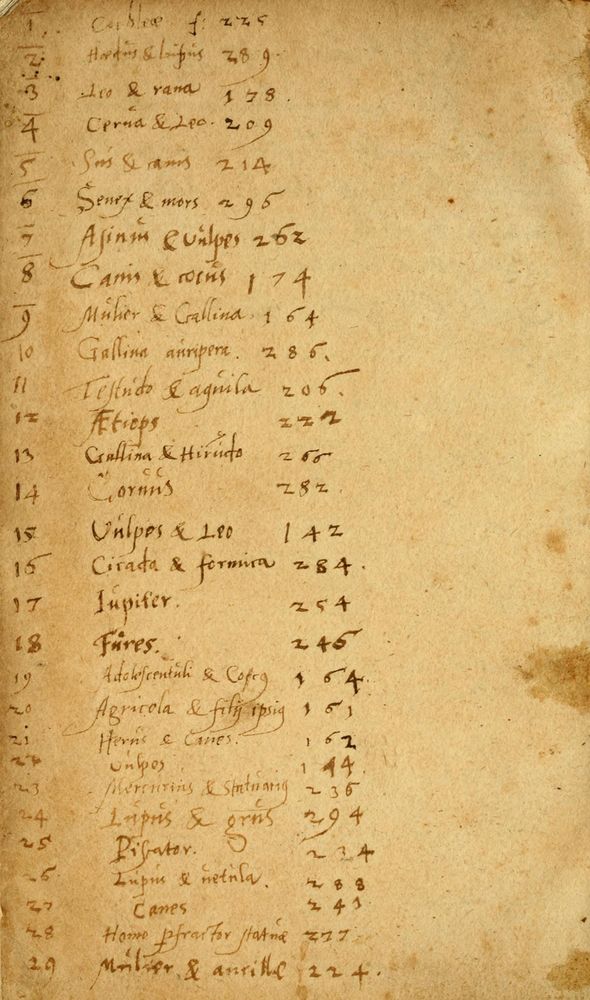 1 Cochleæ f. 225
2 Hœdus & lupus 289.
3 Leo & rana 178.
4 Cerua & Leo. 209
5 Sus & canis 214
6 Senex & mors 296
7 Asinus & Vulpes 262
8 Canis & cocus 174
9 Mulier & Gallina. 164
10 Gallina auripera. 286.
11 Testudo & aquila 206.
12 Ætiops 222
13 Gallina & Hirudo 266
14 Coruus 282.
15 Vulpes & Leo 142
16 Cicada & formica 284.
17 Iupiter. 254
18 Fures. 246
19 Adolescentuli & 164.
20 Agricola & filij ipsius 161
21 Herus & Canes. 162
22 Vulpes 144.
23 Mercurius & Statuarius 236
24 Lupus & grus 294
25 Piscator. 234
26 Lupus & uetula. 288
27 Canes 241
28 Homo perfractor statuæ 277
29 Mulier & ancillæ 224.